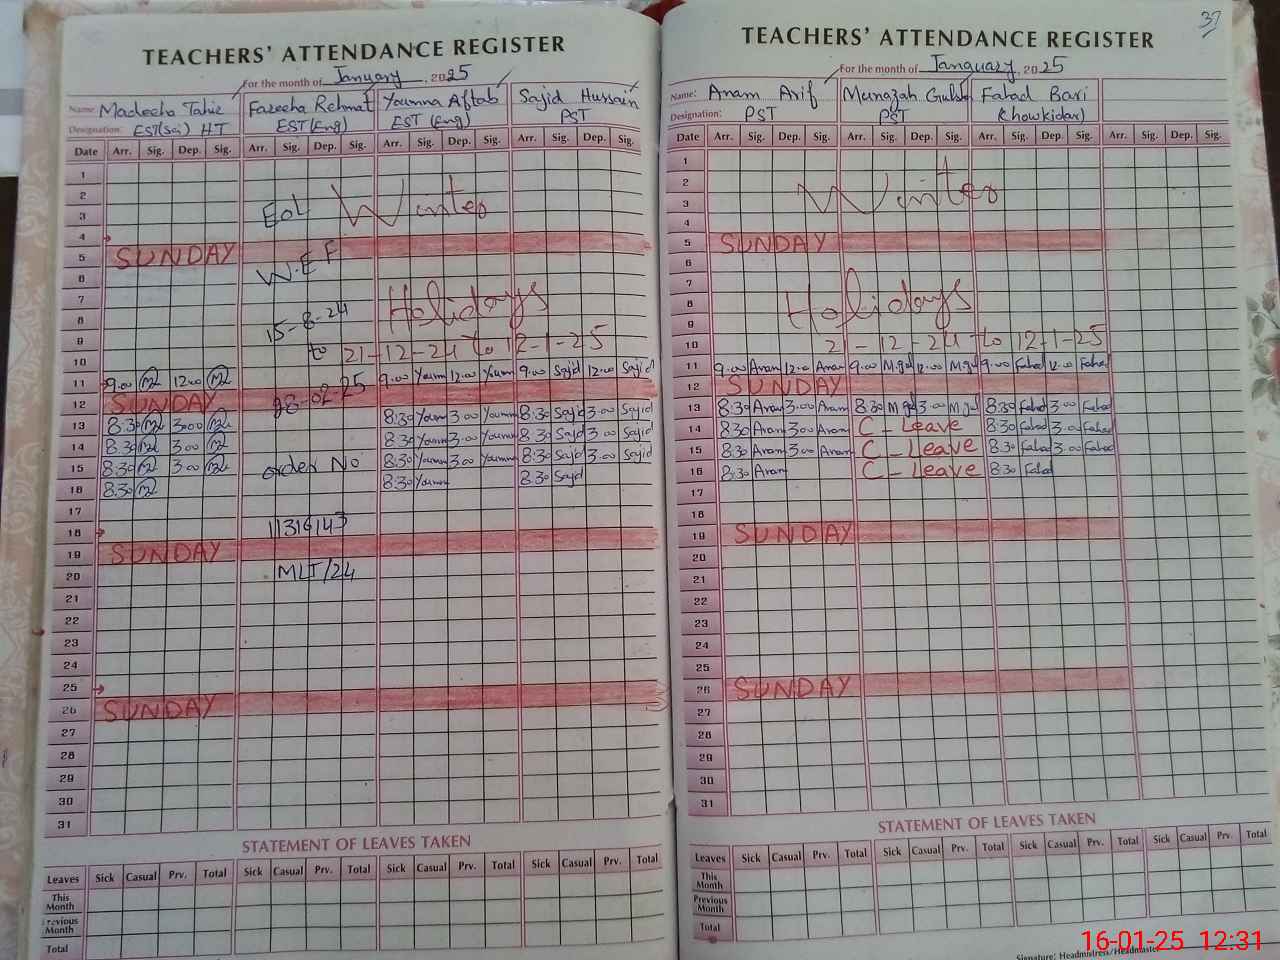 TEACHERS' ATTENDANCE REGISTER
For the month of January, 2025
Name: Madeeha Tahir Fazeeha Rehmat Youmna Aftab Sajid Hussain
Designation: EST(Sci) HT EST(Eng) EST (Eng) PST
Date Arr. Sig. Dep. Sig. Arr. Sig. Dep. Sig. Arr. Sig. Dep. Sig. Arr. Sig. Dep. Sig.
1
2
3 EOL Winter
4
5 SUNDAY
6 W.E.F
7
8 15-8-24 Holidays
9
10 to 21-12-24 to 12-1-25
11 9.00 12.00 9.00 Youmn 12.00 Youmn 9.00 Sajid 12.00 Sajid
12 SUNDAY 28-02-25
13 8:30 3.00 8:30 Youmn 3.00 Youmn 8:30 Sajid 3.00 Sajid
14 8:30 3.00 8:30 Youmn 3.00 Youmn 8:30 Sajid 3.00 Sajid
15 8:30 3.00 order No 8:30 Youmn 3.00 Youmn 8:30 Sajid 3.00 Sajid
16 8:30 8:30 Youmn 8:30 Sajid
17
18 11316143
19 SUNDAY
20 MLT/24
21
22
23
24
25
26 SUNDAY
27
28
29
30
31
STATEMENT OF LEAVES TAKEN
Leaves Sick Casual Prv. Total Sick Casual Prv. Total Sick Casual Prv. Total Sick Casual Prv. Total
This Month
Previous Month
Total
37
TEACHERS' ATTENDANCE REGISTER
For the month of January, 2025
Name: Anam Arif Munazah Gulshan Fahad Bari
Designation: PST PST Chowkidar)
Date Arr. Sig. Dep. Sig. Arr. Sig. Dep. Sig. Arr. Sig. Dep. Sig. Arr. Sig. Dep. Sig.
1
2 Winter
3
4
5 SUNDAY
6
7
8 Holidays
9
10 21-12-24 to 12-1-25
11 9.00 Anam 12.00 Anam 9.00 M.gul 12.00 M.gul 9.00 Fahad 12.00 Fahad
12 SUNDAY
13 8:30 Anam 3.00 Anam 8.30 M.gul 3.00 M.gul 8:30 Fahad 3.00 Fahad
14 8:30 Anam 3.00 Anam C - Leave 8:30 Fahad 3.00 Fahad
15 8:30 Anam 3.00 Anam C - Leave 8:30 Fahad 3.00 Fahad
16 8:30 Anam C - Leave 8:30 Fahad
17
18
19 SUNDAY
20
21
22
23
24
25
26 SUNDAY
27
28
29
30
31
STATEMENT OF LEAVES TAKEN
Leaves Sick Casual Prv. Total Sick Casual Prv. Total Sick Casual Prv. Total Sick Casual Prv. Total
This Month
Previous Month
Total
Signature: Headmistress/Headmaster
16-01-25 12:31